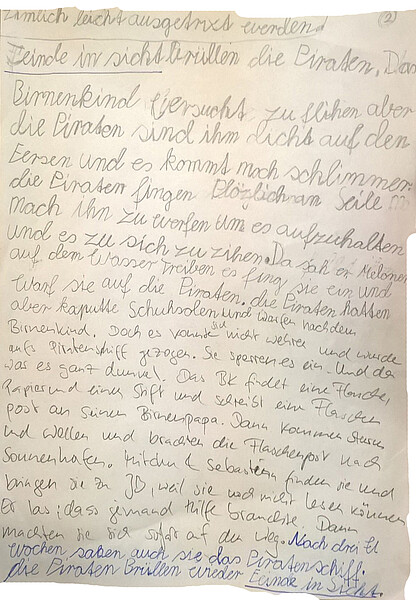 zimlich leicht ausgetrixt werden. (2)
Feinde in sicht brüllen die Piraten. Das
Birnenkind versucht zu flihen aber
die Piraten sind ihm dicht auf den
Eersen und es kommt noch schlimmer
die Piraten fingen Plözlich an Seile
nach ihn zu werfen um es aufzuhalten
und es zu sich zu zihen. Da sah er Melonen
auf dem Wasser treiben es fing sie ein und
warf sie auf die Piraten. die Piraten hatten
aber kaputte Schuhsolen und warfen nach dem
Birnenkind. Doch es konnte sich nicht wehren und wurde
aufs Piratenschiff gezogen. Se sperren es ein. Und da
was es ganz dunkel. Das BK findet eine Flasche,
Papier und einen Stift und schreibt eine Flaschen
post an seinen Birnenpapa. Dann kommen
und wellen und brachten die Flaschenpost nach
Sonnenhafen. & Sebastian finden sie und
bringen sie zu JB, weil sie noch nicht lesen können
Er las, dass jemand Hilfe brauchte. Dann
machten sie sich sofort auf den Weg. Nach drei
wochen sahen auch sie das Piratenschiff.
die Piraten Brüllen wieder Feinde in Sicht.